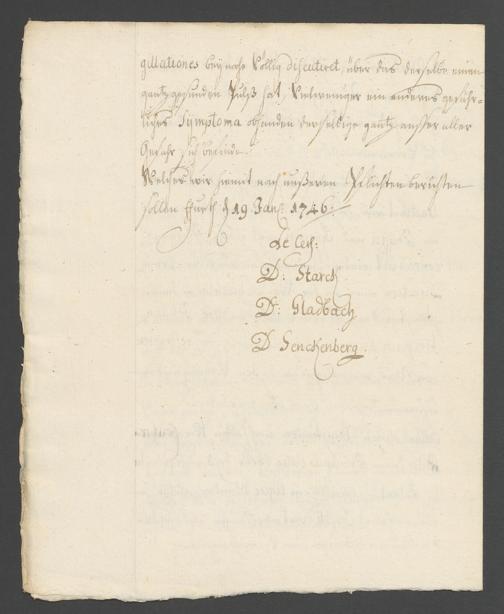 gillationes bey nahe völlig discutiret, über das derselbe einen
gantz gesunden Pulß hat, vielweniger ein anderes gefähr-
liches Symptoma vorhanden derselbige gantz ausser aller
Gefahr sich befinde.
Welches wir hiemit nach unßeren Pflichten berichten
sollen ffurth d 19 Jan: 1746.
D: Starck
D: Gladbach
D Senckenberg.